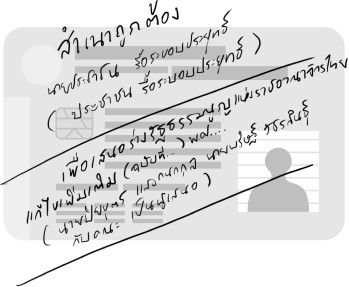 สำเนาถูกต้อง
นายประชาชน รื้อระบอบประยุทธ์
( ประชาชน รื้อระบอบประยุทธ์ )
เพื่อเสนอร่างรัฐธรรมนูญแห่งราชอาณาจักรไทย
แก้ไขเพิ่มเติม (ฉบับที่...) พ.ศ. ...
( นายปิยบุตร แสงกนกกุล นายพริษฐ์ วัชรสินธุ
กับคณะ เป็นผู้เสนอ )